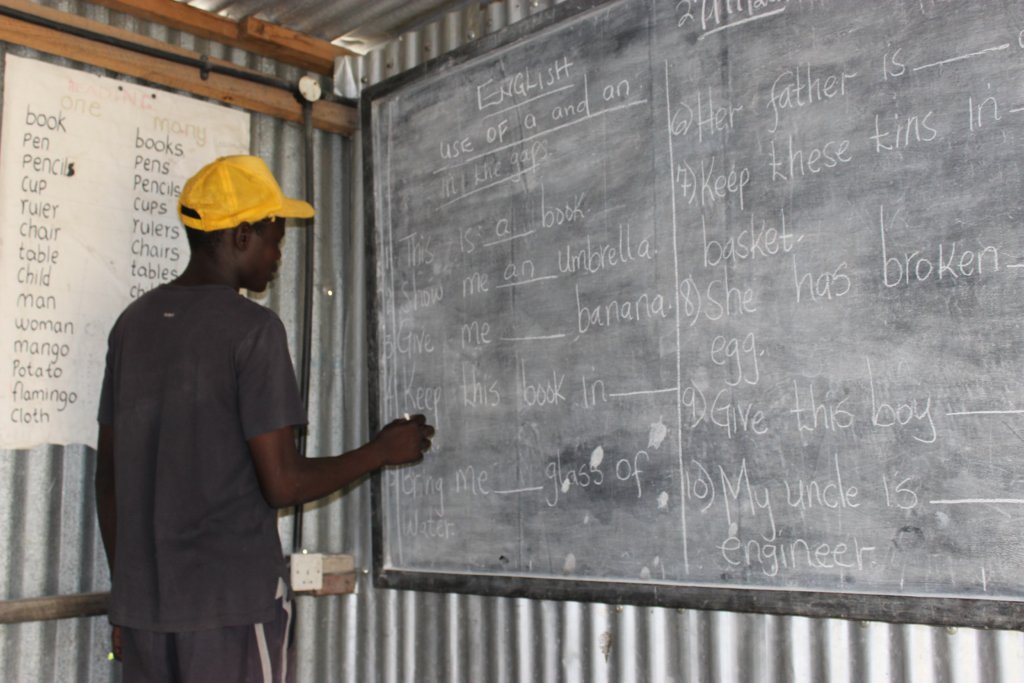 READING
one many
book books
pen pens
pencils Pencils
cup cups
ruler rulers
chair Chairs
table tables
child
man
woman
mango
Potato
flamingo
cloth
ENGLISH
USE OF a and an
in the gaps.
This is a book.
Show me an umbrella.
Give me ___ banana.
Keep this book in ___
bring me ___ glass of
water.
6) Her father is ___
7) Keep these tins in
basket.
8) She has broken
egg.
9) Give this boy ___
10) My uncle is ___
engineer.